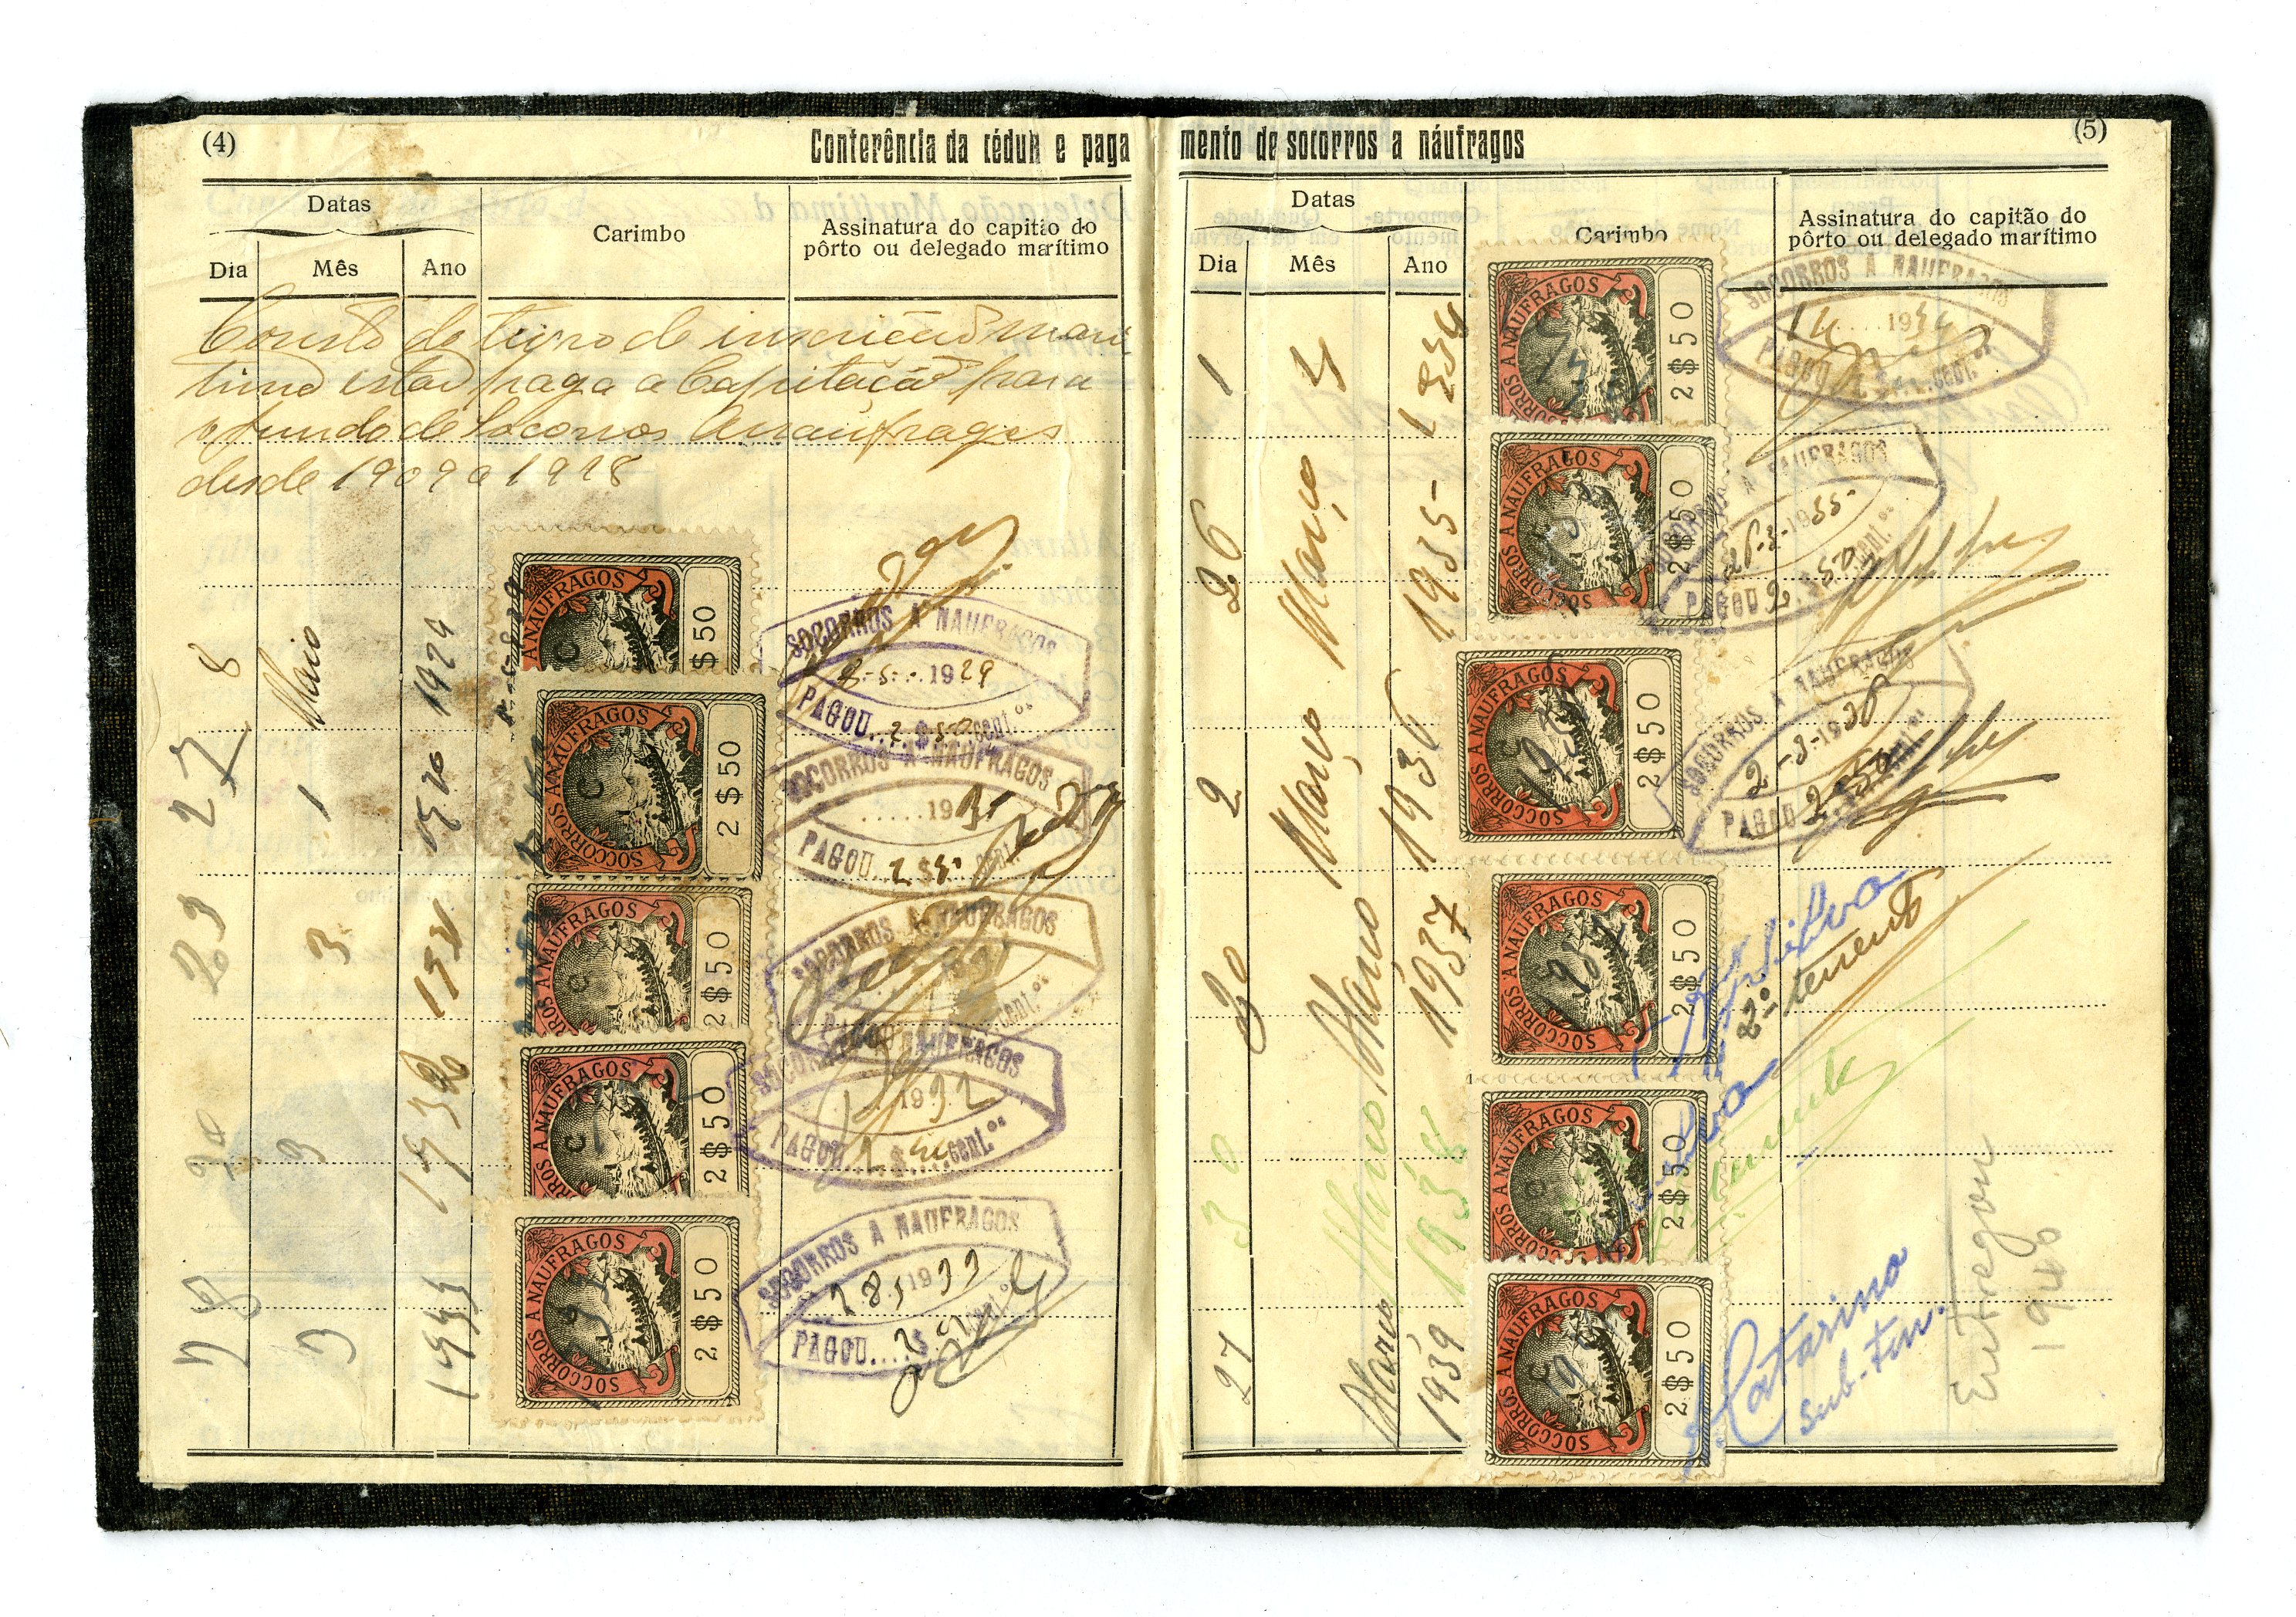 (4)
Conferência da cédula e paga
Datas
Dia
Mês
Ano
Carimbo
Assinatura do capitão do
pôrto ou delegado marítimo
Consta do livro de inscrição mari
tima estar paga a Capitação para
o fundo de Socorros a naufragos
desde 1909 a 1928
8 Maio 1929
SOCCORROS A NAUFRAGOS
2$50
SOCORROS A NAUFRAGOS
8-5-1929
PAGOU 2$50 cent.os
27 1
SOCCORROS A NAUFRAGOS
2$50
SOCORROS A NAUFRAGOS
1931
PAGOU 2 $ cent.
23 3 1931
SOCCORROS A NAUFRAGOS
2$50
SOCORROS A NAUFRAGOS
PAGOU cent.os
3 1932
SOCCORROS A NAUFRAGOS
2$50
SOCORROS A NAUFRAGOS
1932
PAGOU $ cent.os
28 3 1933
SOCCORROS A NAUFRAGOS
2$50
SOCORROS A NAUFRAGOS
28 3 1933
PAGOU 2 $ cent.os
(5)
mento de socorros a náufragos
Datas
Dia
Mês
Ano
Carimbo
Assinatura do capitão do
pôrto ou delegado marítimo
1 1934
SOCCORROS A NAUFRAGOS
2$50
SOCORROS A NAUFRAGOS
1934
PAGOU cent.os
26 Março 1935
SOCCORROS A NAUFRAGOS
2$50
SOCORROS A NAUFRAGOS
26-3-1935
PAGOU 2 $50 cent.os
2 Março 1936
SOCCORROS A NAUFRAGOS
2$50
SOCORROS A NAUFRAGOS
2-3-1936
PAGOU 2$50 cent.os
30 Março 1937
SOCCORROS A NAUFRAGOS
2$50
Silva
2º tenente
30 Março 1938
SOCCORROS A NAUFRAGOS
2$50
tenente
27 Março 1939
SOCCORROS A NAUFRAGOS
2$50
Catarino
Sub-Ten.
Entregou
1940